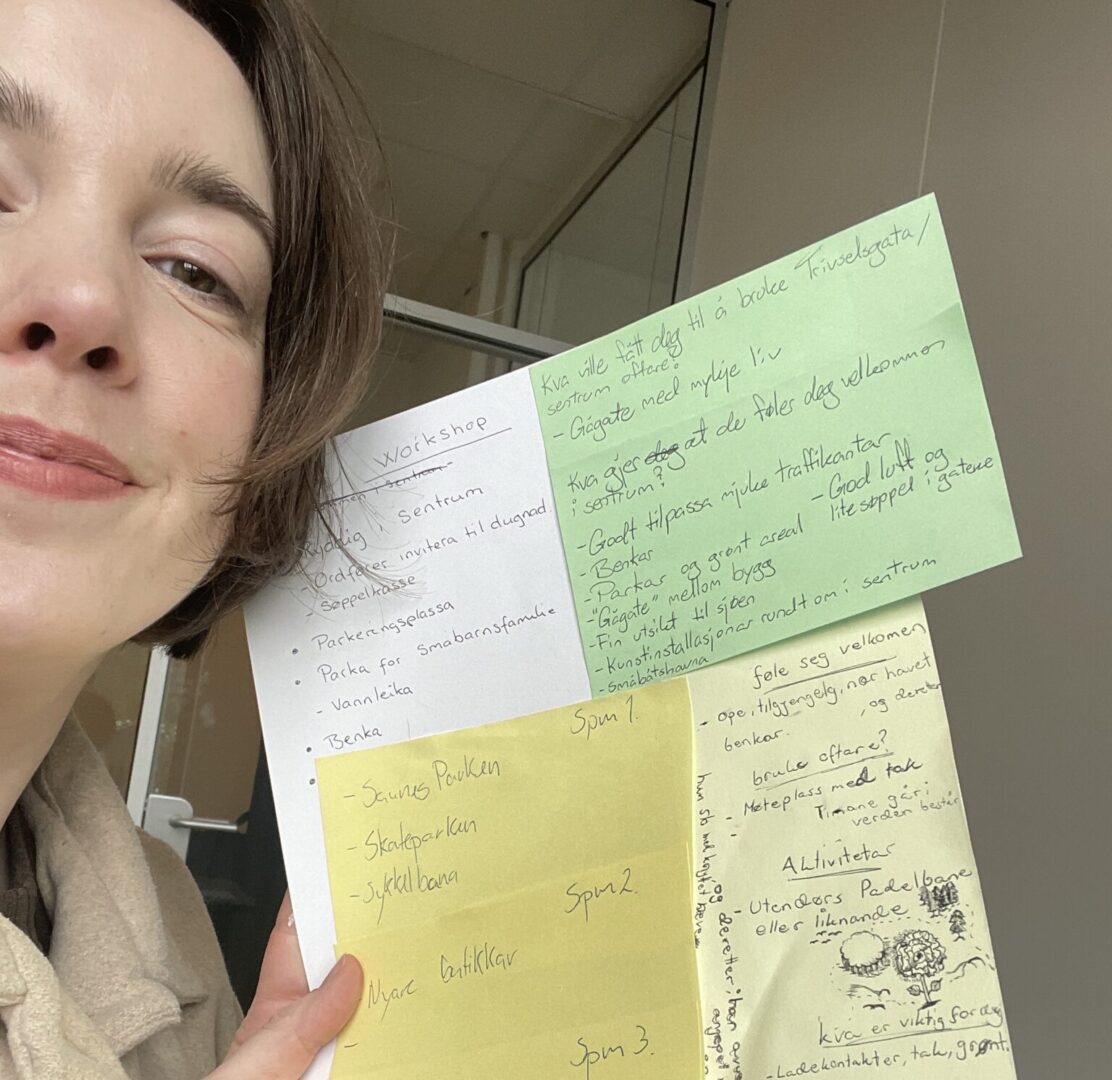 Workshop
i sentrum
Rydding i sentrum
- Ordfører invitera til dugnad.
- Søppelkasse
• Parkeringsplassa
• Parka for Småbarnsfamilie
- Vannleika
• Benka
•
Kva ville fått deg til å bruke Trivselsgata/
sentrum oftare?
- Gågate med mykje liv
Kva gjer deg at de føles deg velkommen
i sentrum?
- Godt tilpassa mjuke traffikantar
- Benkar
- Parkar og grønt areal
- "Gågate" mellom bygg
- Fin utsikt til sjøen
- Kunstinstallasjonar rundt om i sentrum
- Småbåtshavna
- God luft og
lite søppel i gatene
Spm 1.
- Saunes Parken
- Skateparken
- Sykkelbana
Spm 2.
- Nyare butikkar
-
Spm 3.
føle seg velkomen
- ope, tilgjengelg, nær havet
, og deretter
benkar.
bruke oftare?
- Møteplass med tak
Timane går;
verden består
Aktivitetar
- Utendørs Padelbane
eller liknande
kva er viktig for deg
- Ladekontakter, tak, grønt.
hun sto med knyttet neve
og deretter; han